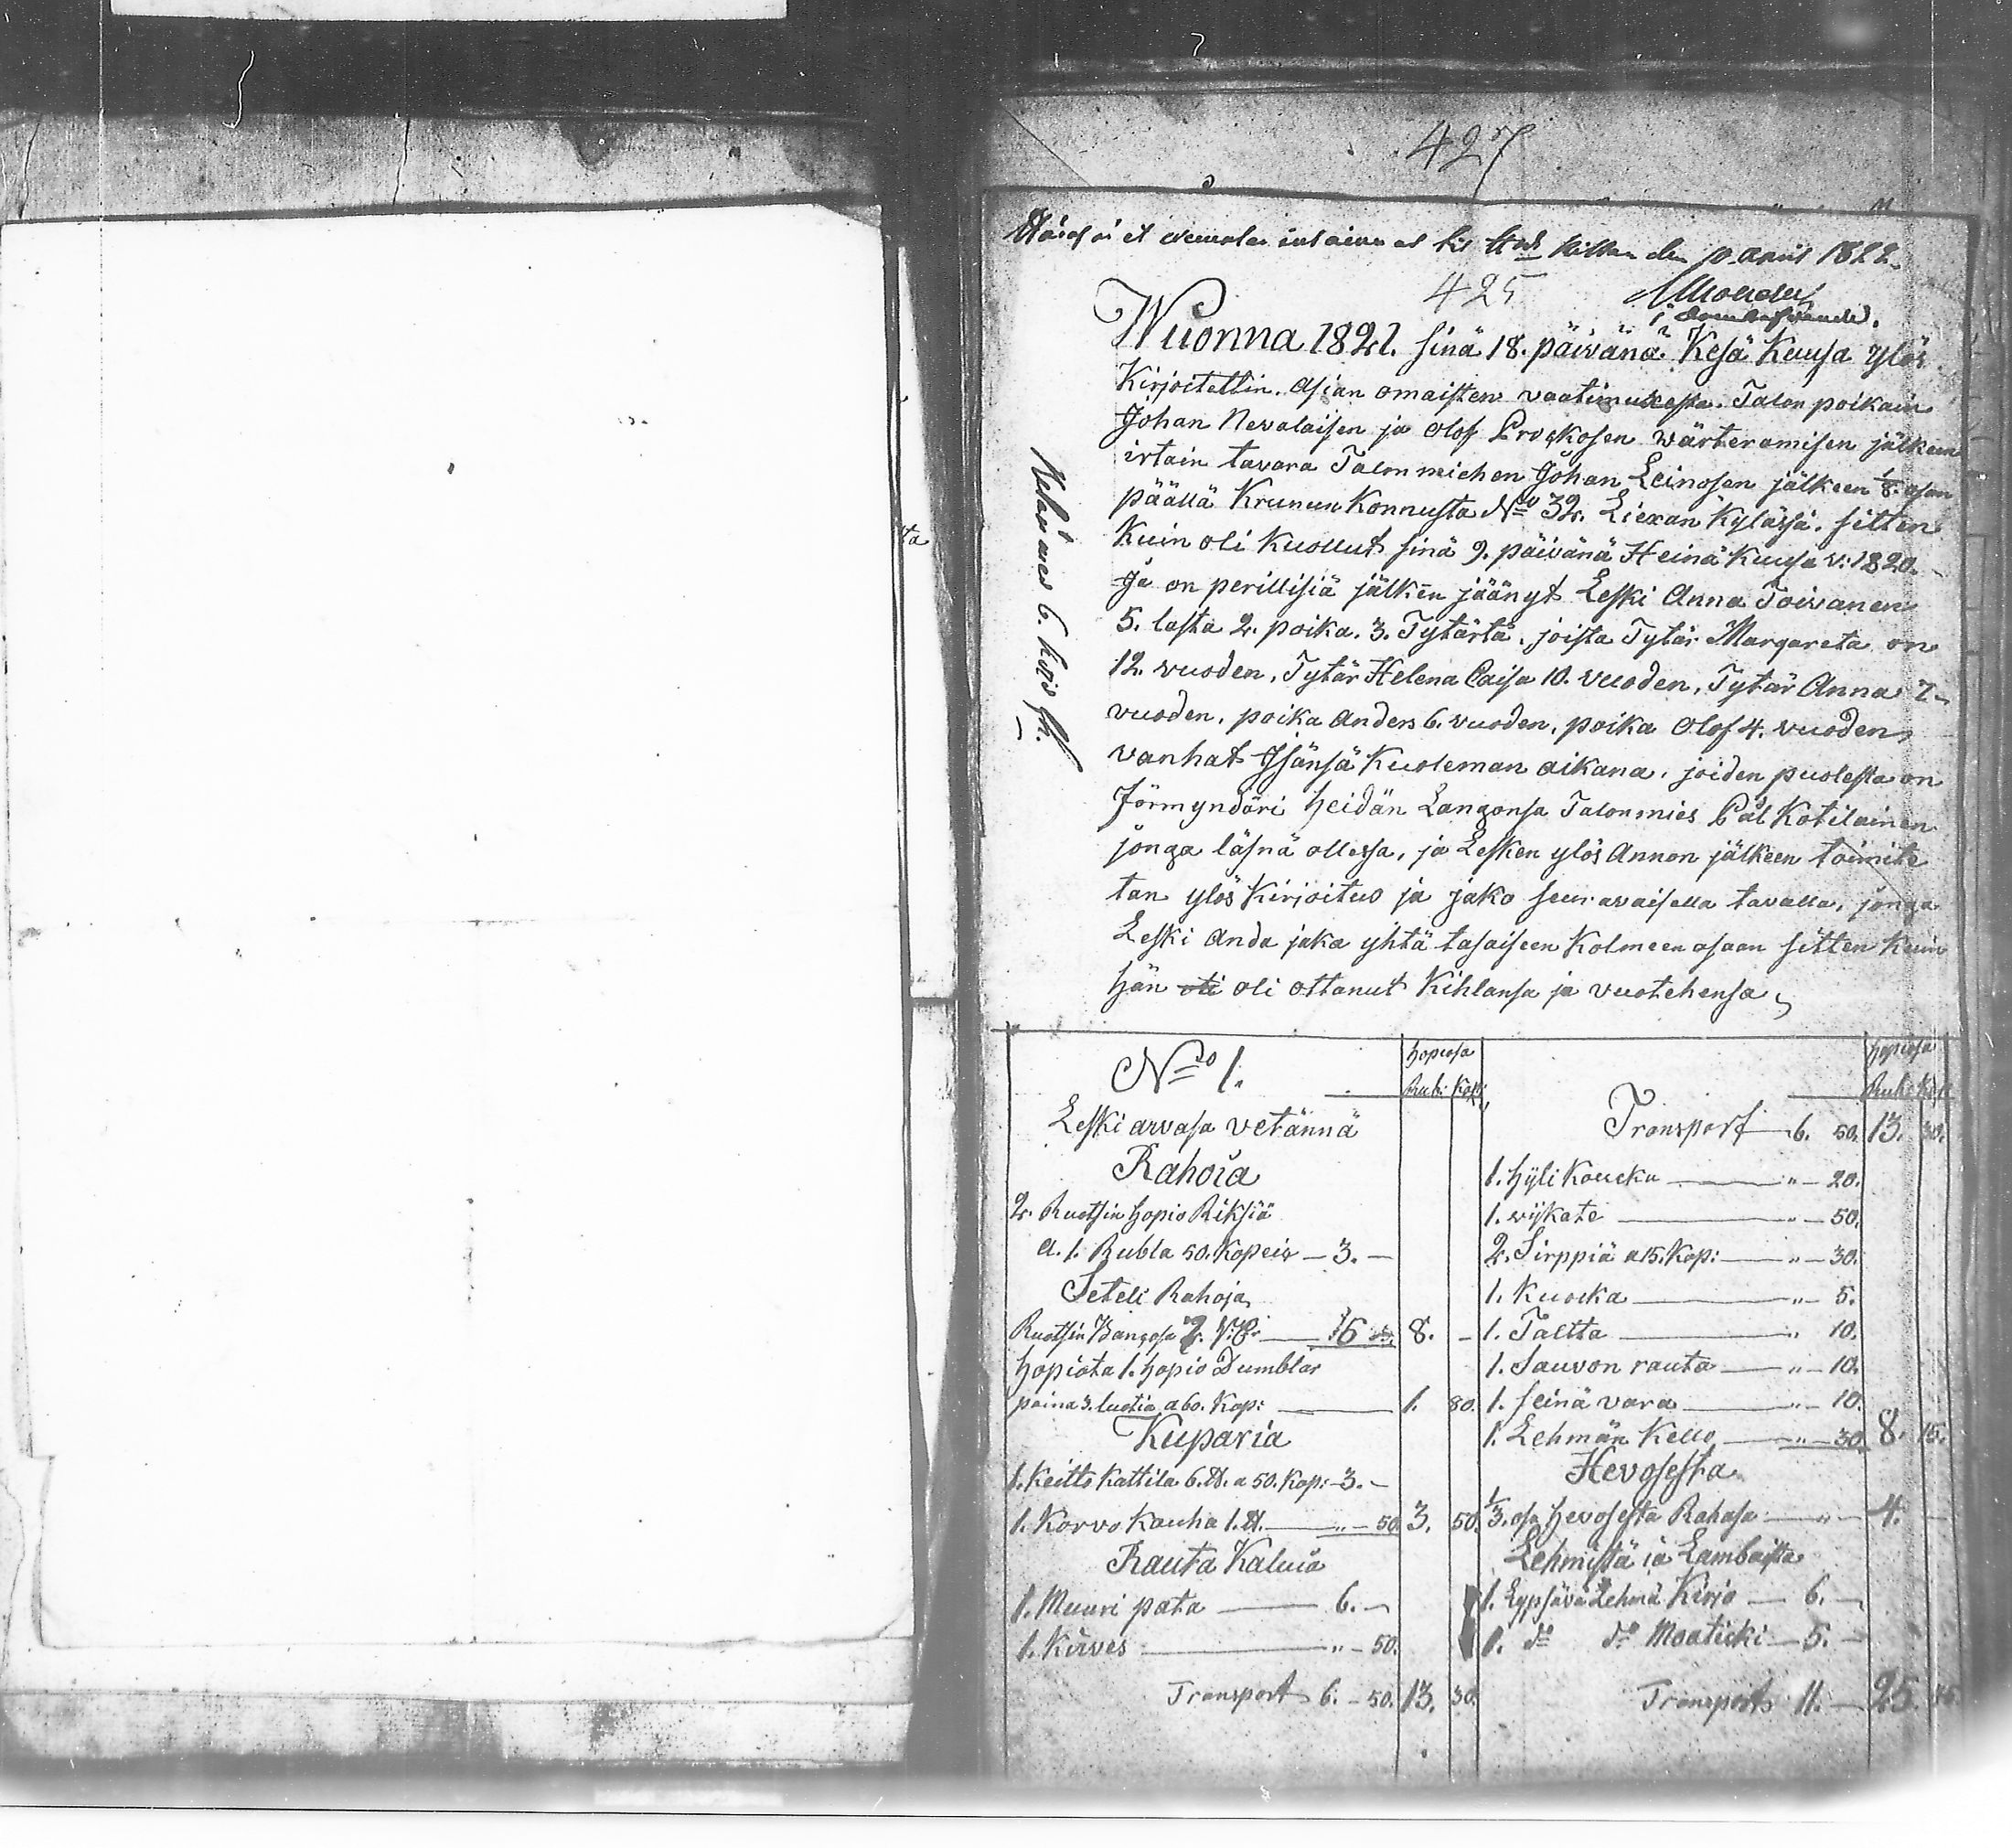 427
den 10 April 1822.
425
Wuonna 1821. sinä 18. päivänä Kesä Kuusa ylös
Kirjoitettin. Asian omaisten vaatimuxesta. Talon poikain
Johan Nevalaisen ja Olof wärteramisen jälkeen
irtain tavara Talon miehen Johan Leinosen jälkeen 1/8. osan
päällä Krunun Konnusta No 32. Liexan Kylässä. sitten
Kuin oli Kuollut sinä 9. päivänä Heinä Kuusa v: 1820.
Ja on perillisiä jälken jäänyt Leski Anna Toivanen
5. lasta 2. poika. 3. Tytärtä. joista Tytär Margareta on
12. vuoden, Tytär Helena Caisa 10. vuoden, Tytär Anna 7.
vuoden. poika Anders 6. vuoden. poika Olof 4. vuoden
vanhat Isänsä Kuoleman aikana. joiden puolesta on
förmyndäri heidän Langonsa Talon mies Pål Kotilainen
jonga läsnä ollessa, ja Lesken ylös Annon jälkeen toimite
tan ylös Kirjoitus ja jako seuravaisella tavalla, jonga
Leski Anda jaka yhtä tasaiseen Kolmeen osaan sitten Kuin
hän oti oli ottanut Kihlansa ja vuotehensa
6. kop
No 1.
hopiasa
Rub: Kop:
Leski arvasa vetännä
Rahoia
2. Ruotsin hopio Riksiä
a. 1. Rubla 50. Kopeix — 3. —
Seteli Rahoja
Ruotsin Bangosa 8. —
hopiata 1. hopio Dumblar
paina 3. luotia a 60. Kop: — 1. 80.
Kuparia
1. Keitto Kattila 6. ℔. a 50. Kop: 3. —
1. Korvo Kauha 1. ℔. — " — 50. 3. 50.
Rauta Kaluia
1. Muuri pata — 6. —
1. Kirves — " — 50.
Transport 6. — 50. 13. 30.
hopiasa
Rub: Kop
Transport 6. 50. 13. 30.
1. hyli Koucku — " — 20.
1. vijkate — " — 50.
2. Sirppiä a 15. Kop: — " — 30.
1. Kuocka — " — 5.
1. Taltta — " 10.
1. Sauvon rauta — " — 10.
1. seinä vara — " — 10.
1. Lehmän Kello — " — 30. 8. 15.
Hevosesta
1/3. osa hevosesta Rahasa — " — 4. —
Lehmistä ja Lambaista
1. Lypsävä Lehmä Kirjo — 6. —
1. do do Maaticki — 5. —
Transport 11. — 25.